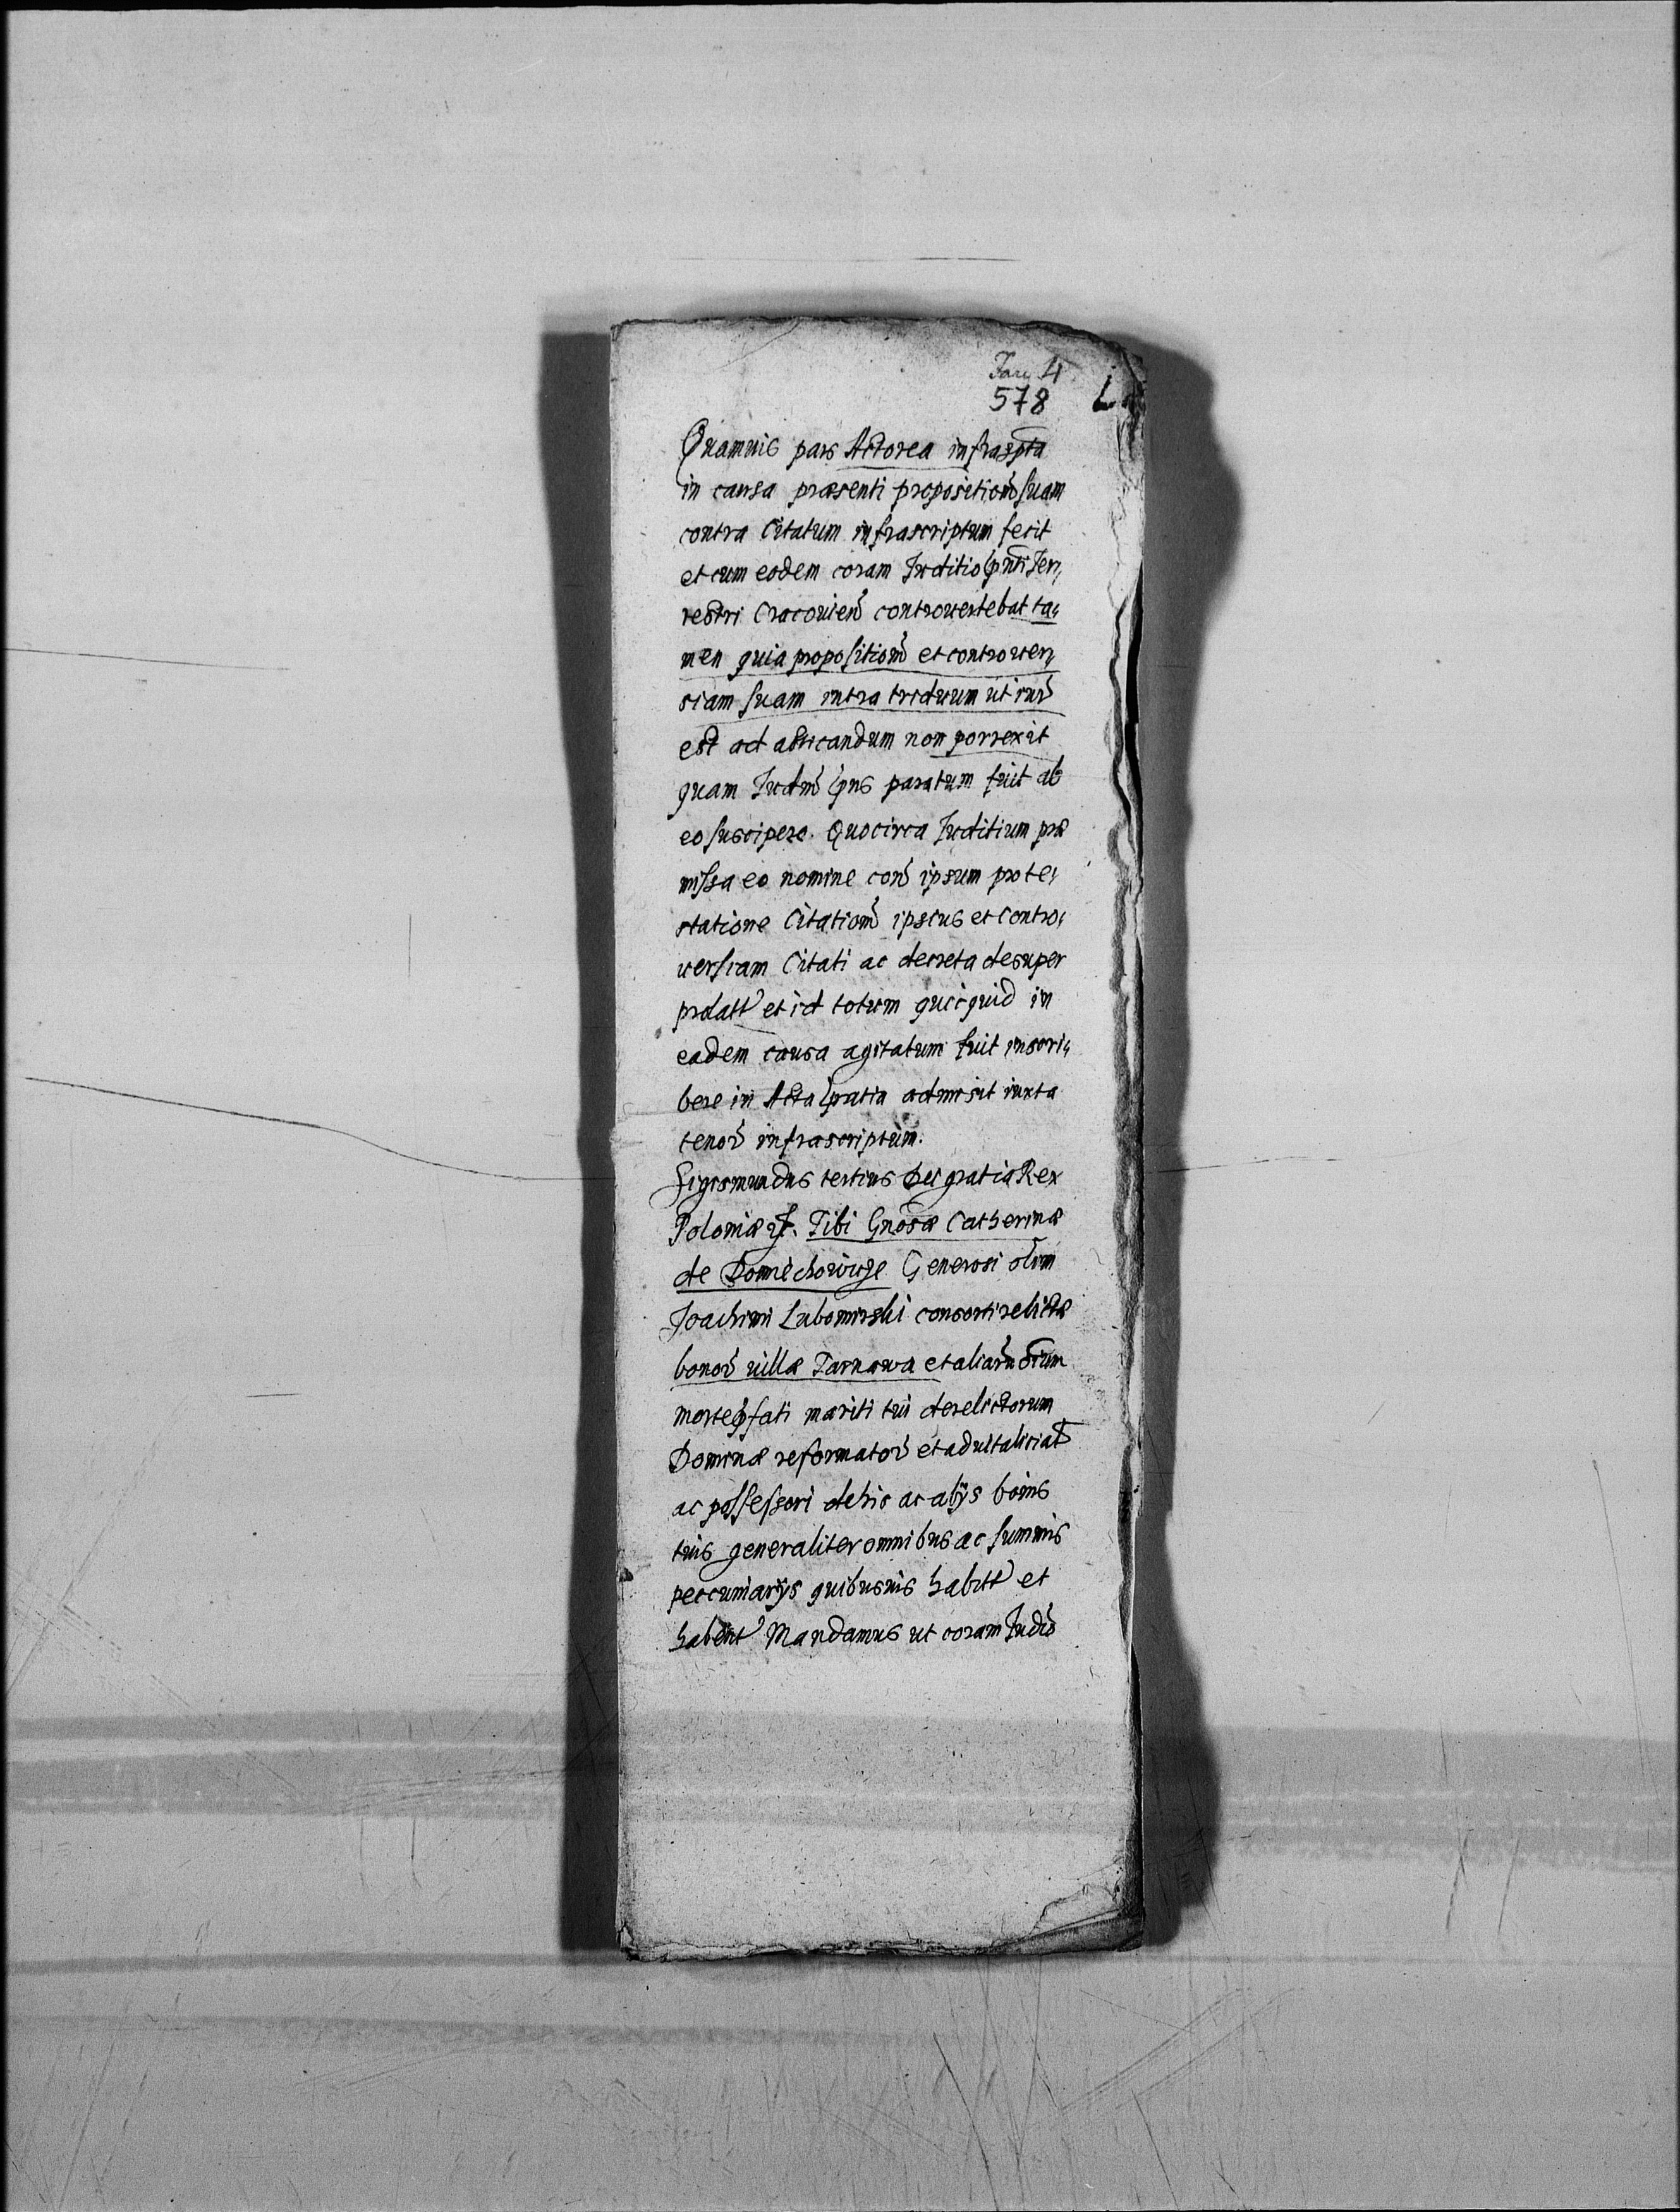 Fasc 4
578
Quamuis pars Actorea infraspta
in causa præsenti propositioñ suam
contra Citatum infrascriptum fecit
et cum eodem coram Juditio pñti Ter,
restri Cracovieñ controvertebat ta,
men quia propositioñ et controuer,
siam suam intra triduum ut iur̃
est ad assicandum non porrexit
quam Judm̃ pns paratum fuit ab
eo suscipere. Quocirca Juditium præ
missa eo nomine coñ ipsum prote,
statione Citatioñ ipsius et contro,
uersiam Citati ac decreta desuper
prolatt̃ et id totum quicquid in
eadem causa agitatum fuit inscri,
bere in Acta pñtia admisit iuxta
tenor̃ infrascriptum.
Sigismundus tertius Dei gratia Rex
Poloniæ etc. Tibi Gnosæ Catherinæ
de Domiechowicze Generosi olim
Joachimi Lubomirski consorti relictæ
bonor̃ uillæ Tarnawa et aliarũ oĩum
morte p̃fati mariti tui derelictorum
Dominæ reformator̃ et aduitaliciat̃
ac possessori de his ac alÿs bonis
tuis generaliter omnibus ac summis
peccuniarÿs quibusuis habitt̃ et
habent̃ Mandamus ut coram Judio